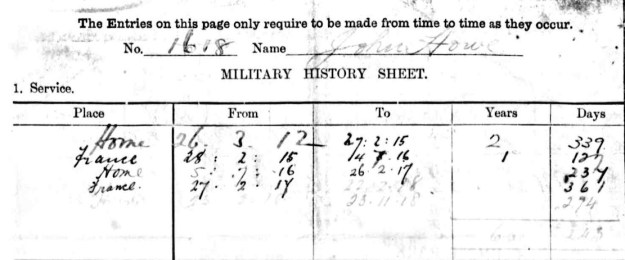 The Entries on this page only require to be made from time to time as they occur.
No. 1618 Name John Howe
MILITARY HISTORY SHEET.
1. Service.
Place From To Years Days
Home 26. 3. 12 27: 2: 15 2 339
France 28: 2: 15 14 16 1
Home 5: 7: 16 26 2. 17 237
France. 27. 2. 17 18 361
23.11.18 294
243